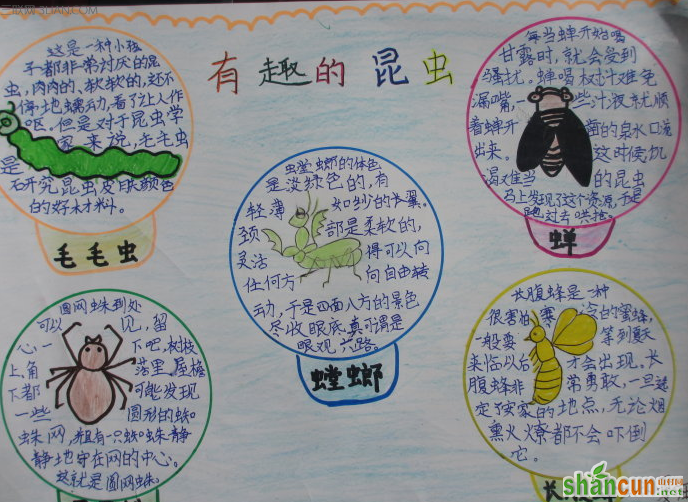 有趣的昆虫
这是一种小孩
子都非常讨厌的昆
虫,肉肉的、软软的,还不
停地蠕动,看了让人作
呕。但是对于昆虫学
家来说,毛毛虫
是
研究昆虫皮肤颜色
的好材料。
毛毛虫
每当蝉开始喝
甘露时,就会受到
骚扰。蝉喝树汁难免
漏嘴,一些汁液就顺
着蝉开凿的泉水口溢
出来。这时候饥
渴难当的昆虫
马上发现了这个资源,于是
跑过去哄抢。
蝉
螳螂的体色
是淡绿色的,有
轻薄如纱的长翼。
颈部是柔软的,
灵活得可以向
任何方向自由转
动,于是四面八方的景色
尽收眼底,真可谓是
眼观六路。
螳螂
圆网蛛到处
可以见,留
心一下吧,树枝
上、角落里,屋檐
下都可能发现
一些圆形的蜘
蛛网,并且有一只蜘蛛静
静地守在网的中心。
这就是圆网蛛。
长腹蜂是一种
很害怕寒冷的蜜蜂,
一般要等到夏天
来临以后才会出现。长
腹蜂非常勇敢,一旦选
定了安家的地点,无论烟
熏火燎都不会吓倒
它。
shancun
山村网
.net